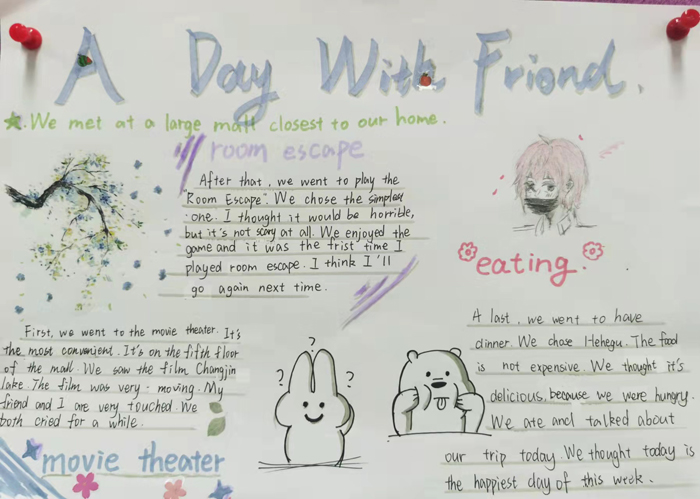 A Day With Friend.
We met at a large mall closest to our home.
room escape
After that, we went to play the
"Room Escape". We chose the simplest
one. I thought it would be horrible,
but it's not scary at all. We enjoyed the
game and it was the frist time I
played room escape. I think I'll
go again next time.
First, we went to the movie theater. It's
the most convenient. It's on the fifth floor
of the mall. We saw the film Changjin
lake. The film was very moving. My
friend and I are very touched. We
both cried for a while.
movie theater
? ? ?
eating.
A last, we went to have
dinner. We chose Hehegu. The food
is not expensive. We thought it's
delicious, because we were hungry.
We ate and talked about
our trip today. We thought today is
the happiest day of this week.